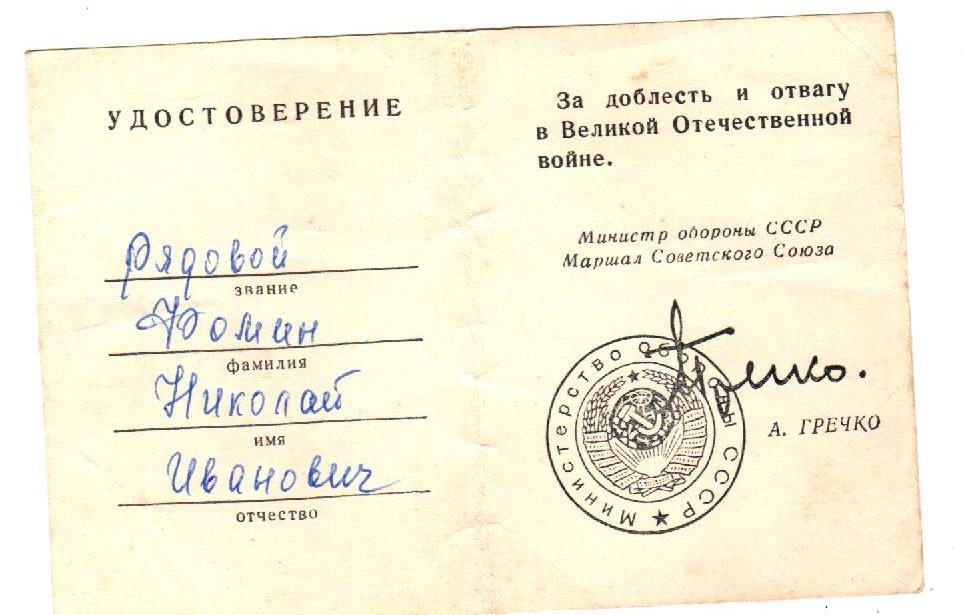 УДОСТОВЕРЕНИЕ
Рядовой
звание
Фомин
фамилия
Николай
имя
Иванович
отчество
За доблесть и отвагу
в Великой Отечественной
войне.
Министр обороны СССР
Маршал Советского Союза
Гречко.
А. ГРЕЧКО
Министерство Обороны СССР